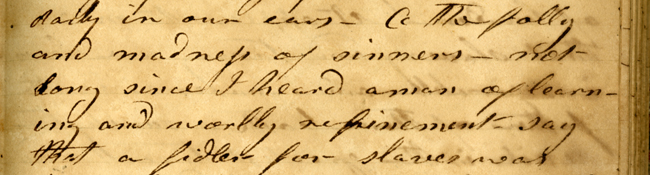 daily in our ears - O the folly
and madness of sinners - not
long since I heard a man of learn-
ing and worlly refinement - say
that a fidler for slaves was